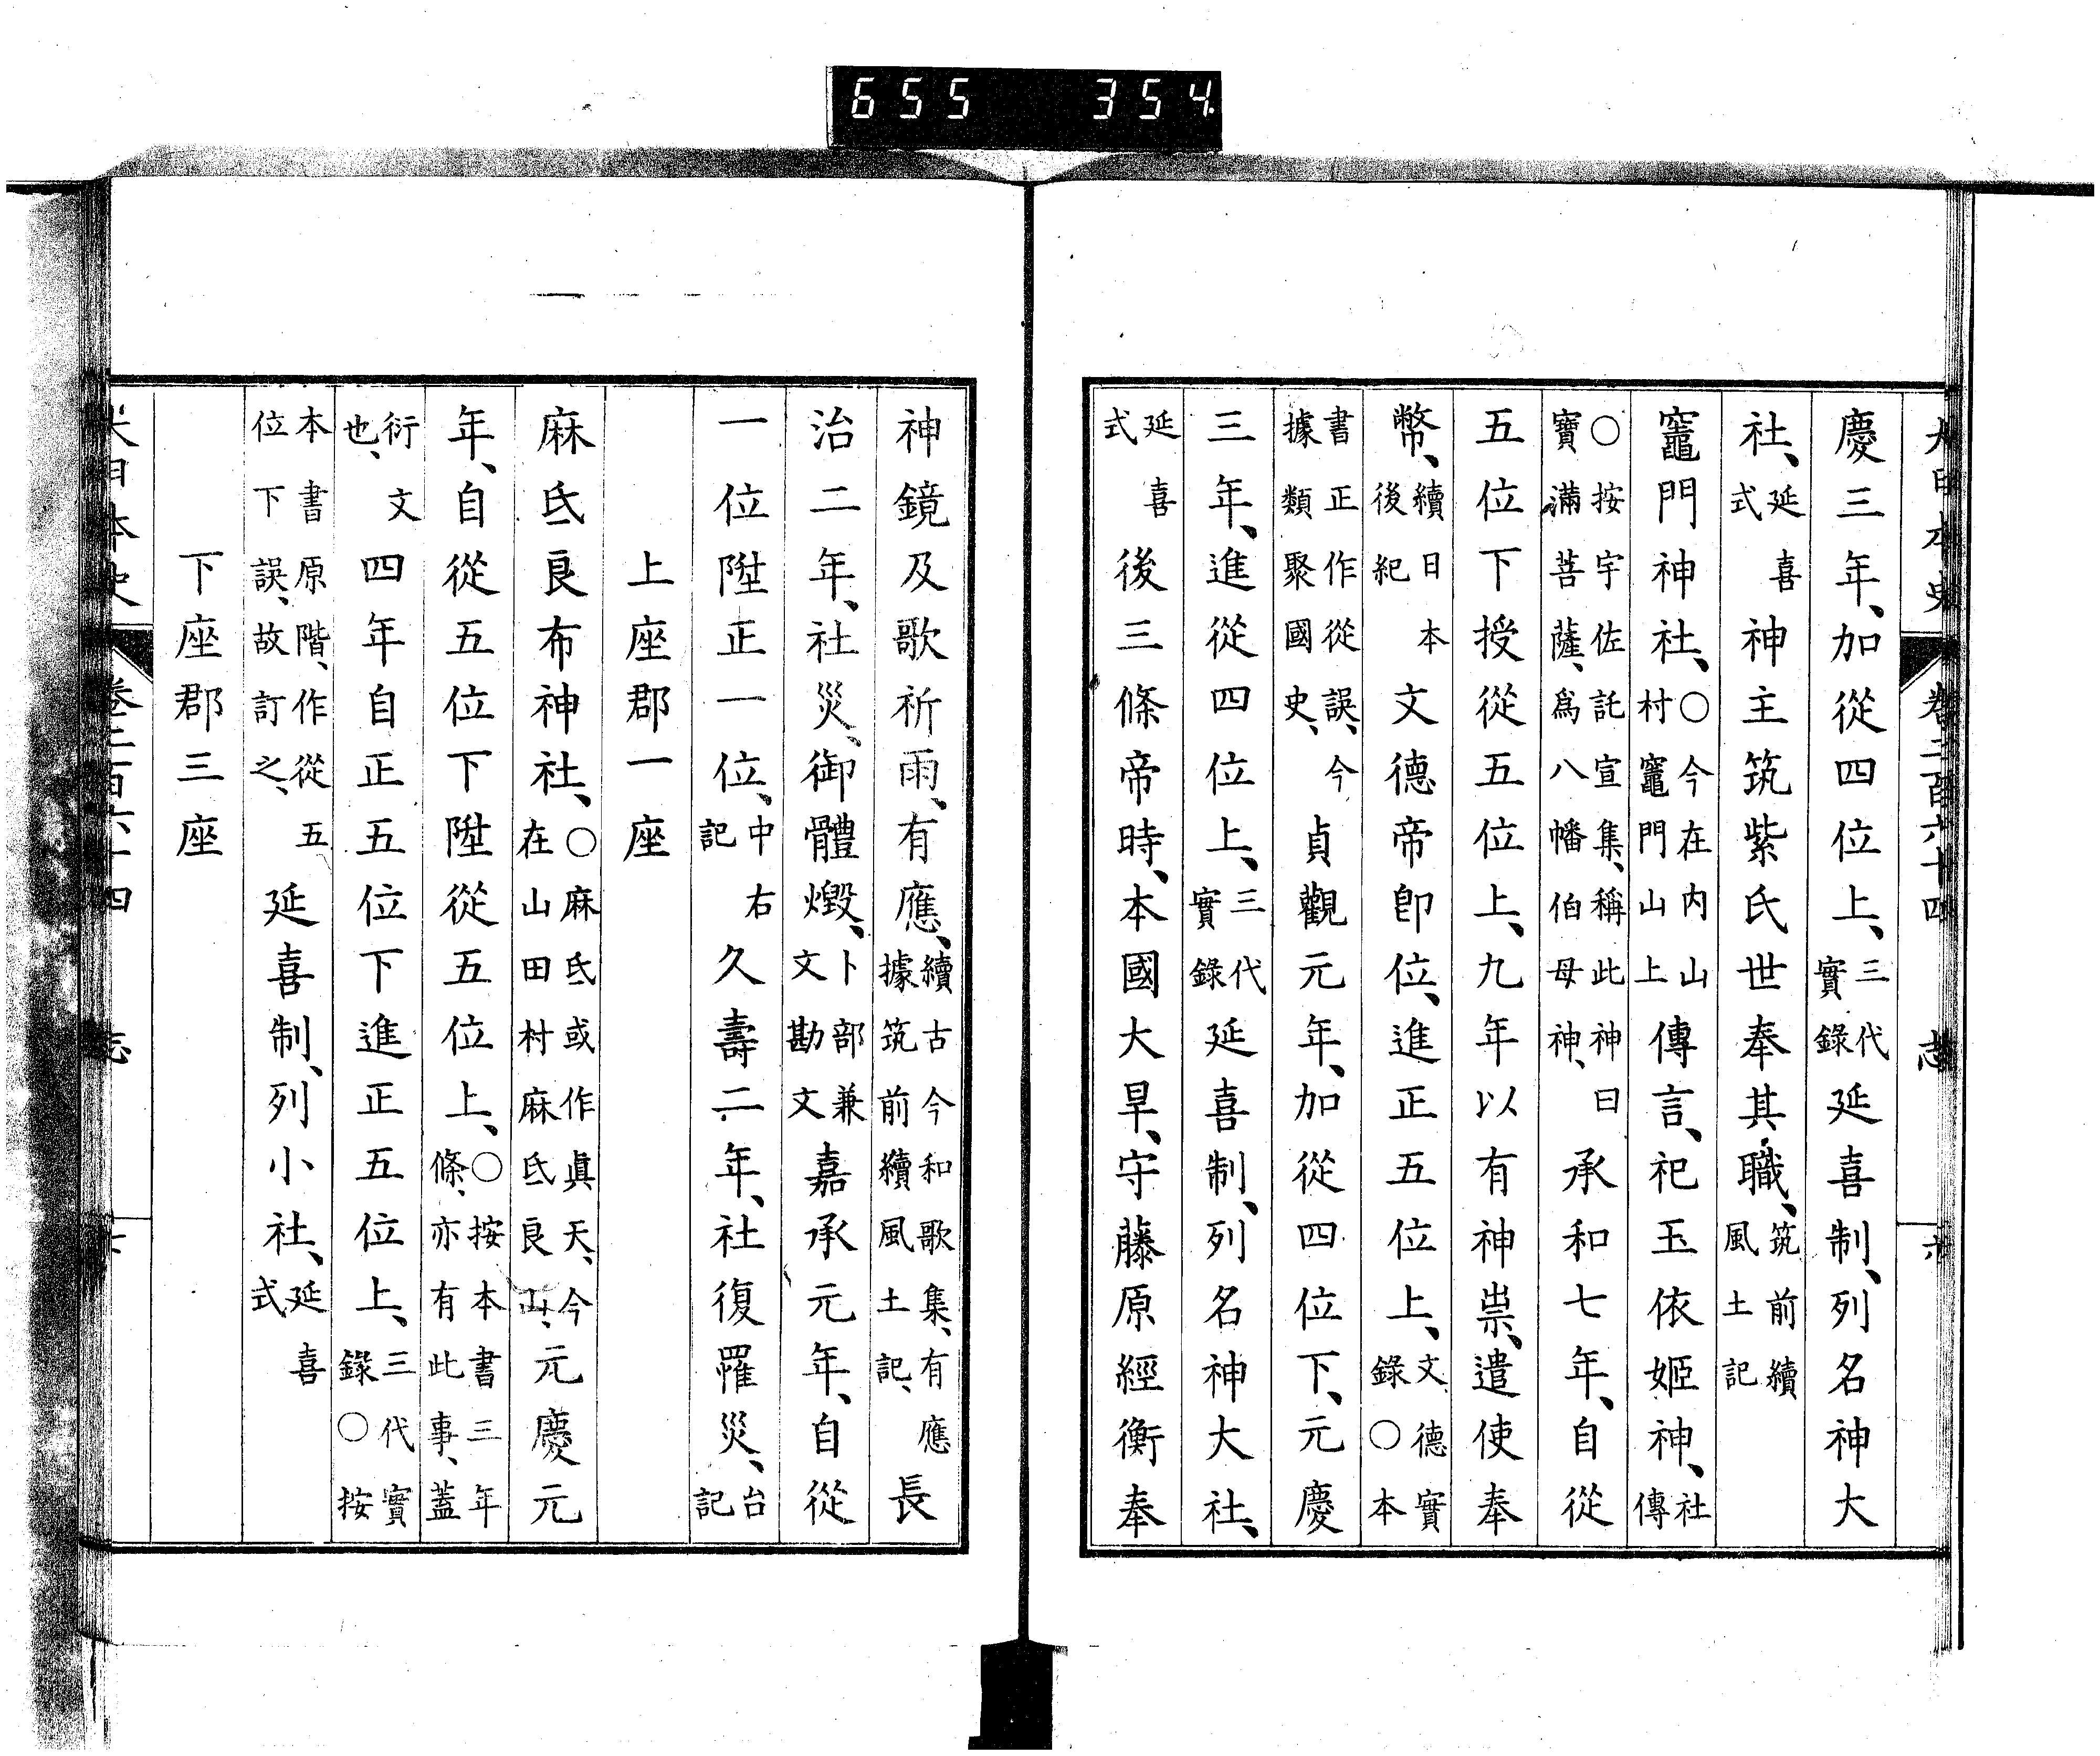 655 354
大日本史 卷二百六十四 志 六
慶三年、加從四位上、三代實錄延喜制、列名神大
社、延喜式神主筑紫氏世奉其職、筑前續風土記
竈門神社、○今在内山村竈門山上傳言、祀玉依姬神、社傳
○按宇佐託宣集、稱此神曰寶滿菩薩、爲八幡伯母神、承和七年、自從
五位下授從五位上、九年以有神祟、遣使奉
幣、續日本後紀文德帝卽位、進正五位上、文德實錄○本
書正作從誤、今據類聚國史、貞觀元年、加從四位下、元慶
三年、進從四位上、三代實錄延喜制、列名神大社、
延喜式後三條帝時、本國大旱、守藤原經衡奉
神鏡及歌祈雨、有應、續古今和歌集、有應據筑前續風土記、長
治二年、社災、御體燬、卜部兼文勘文嘉承元年、自從
一位陞正一位、中右記久壽二年、社復罹災、台記
上座郡一座
麻氐良布神社、○麻氐或作眞天、今在山田村麻氐良山、元慶元
年、自從五位下陞從五位上、○按本書三年條、亦有此事、蓋
衍文也、四年自正五位下進正五位上、三代實錄○按
本書原階、作從五位下誤、故訂之、延喜制、列小社、延喜式
下座郡三座
大日本史 卷二百六十四 志 七